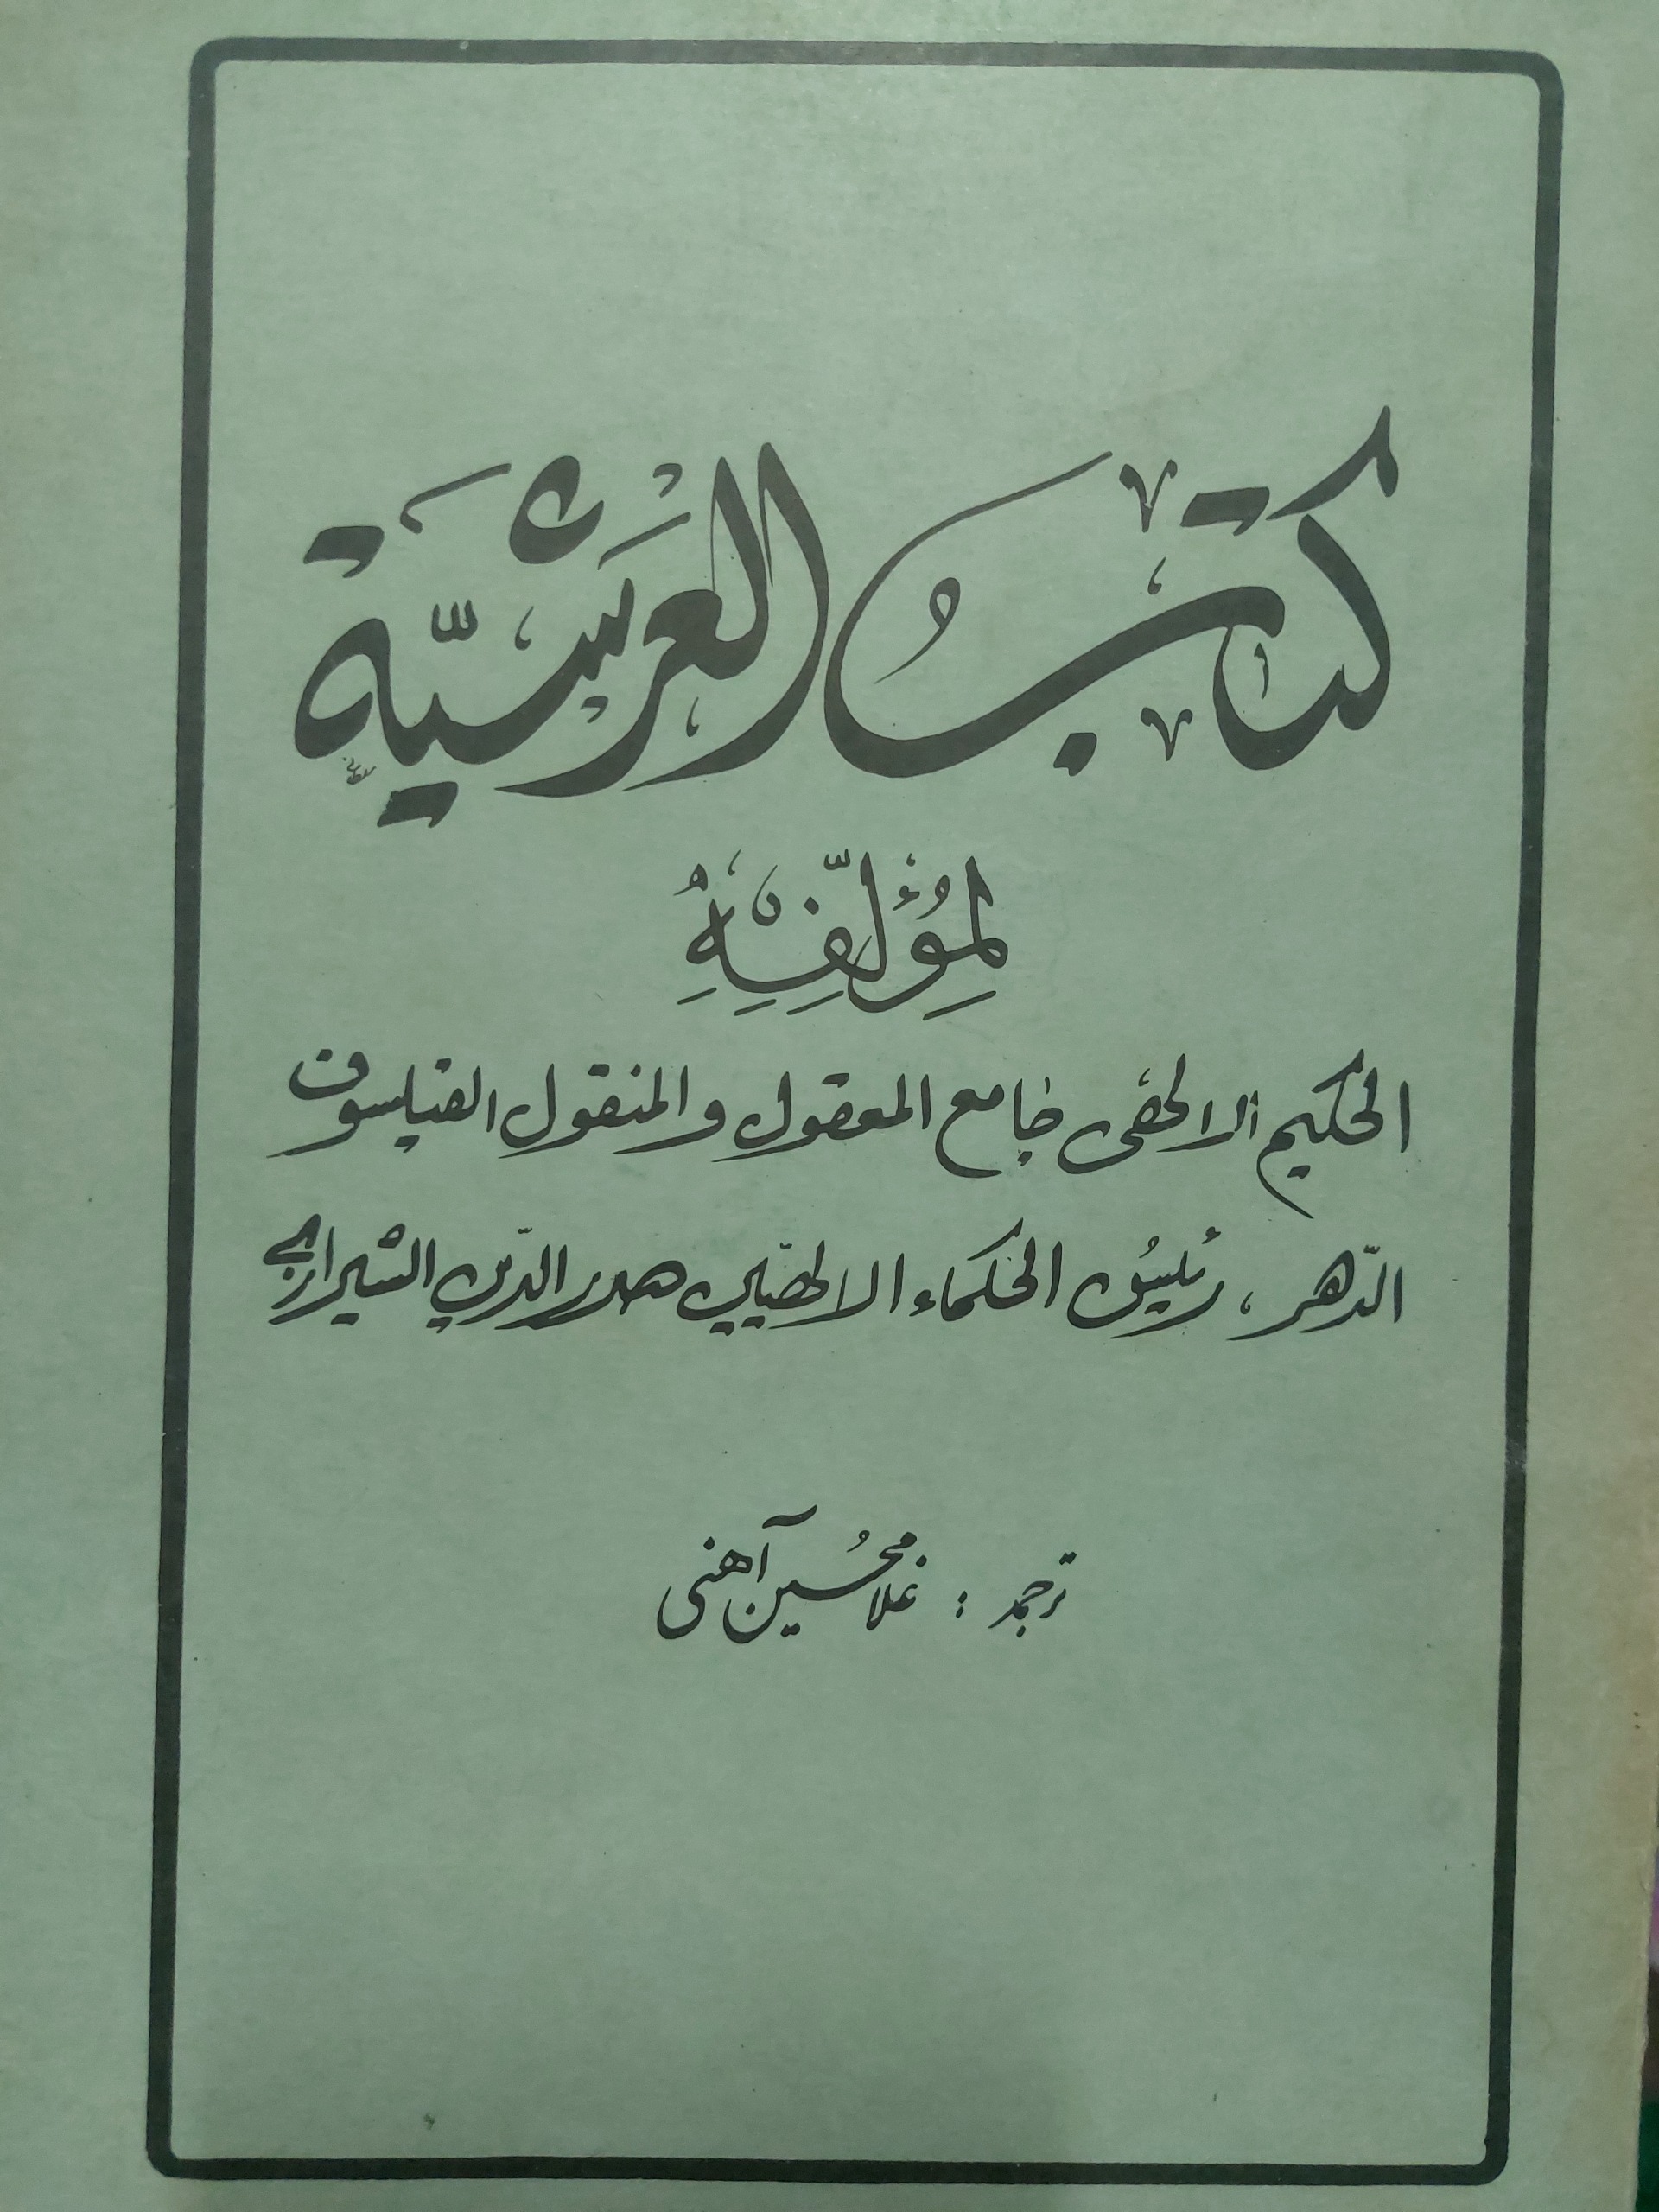 كتاب العرشيّة
لِمُؤَلِّفِهِ
الحكيم الالهى جامع المعقول والمنقول الفيلسوف
الدّهر، رئيسُ الحكماء الالهيّين صدر الدّين الشيرازي
ترجمه : غلامحسین آهنی